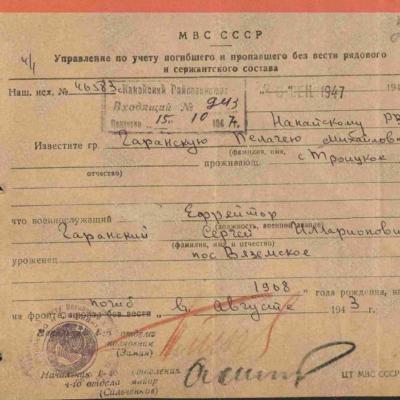 МВС СССР
ч/1
Управление по учету погибшего и пропавшего без вести рядового
и сержантского состава
Наш. исх. № 46583
Нанайский Райвоенкомат
Входящий № 943
15. 10 1947г.
СЕН. 1947
194
Нанайскому Р
Известите гр. Гаранскую Пелагею Михайловн
(фамилия, имя,
проживающ. с Троицкое
отчество)
что военнослужащий Ефрейтор
(должность, военное звание)
Гаранский Сергей Илларионович
(фамилия, имя и отчество)
уроженец пос Вяземское
1908 года рождения, на
погиб в Августе 1943 г.
на фронте, пропал без вести
4-го отдела
полковник
(Зимин)
Начальник отделения
4-го отдела майор
(Сильченков)
ЦТ МВС СССР